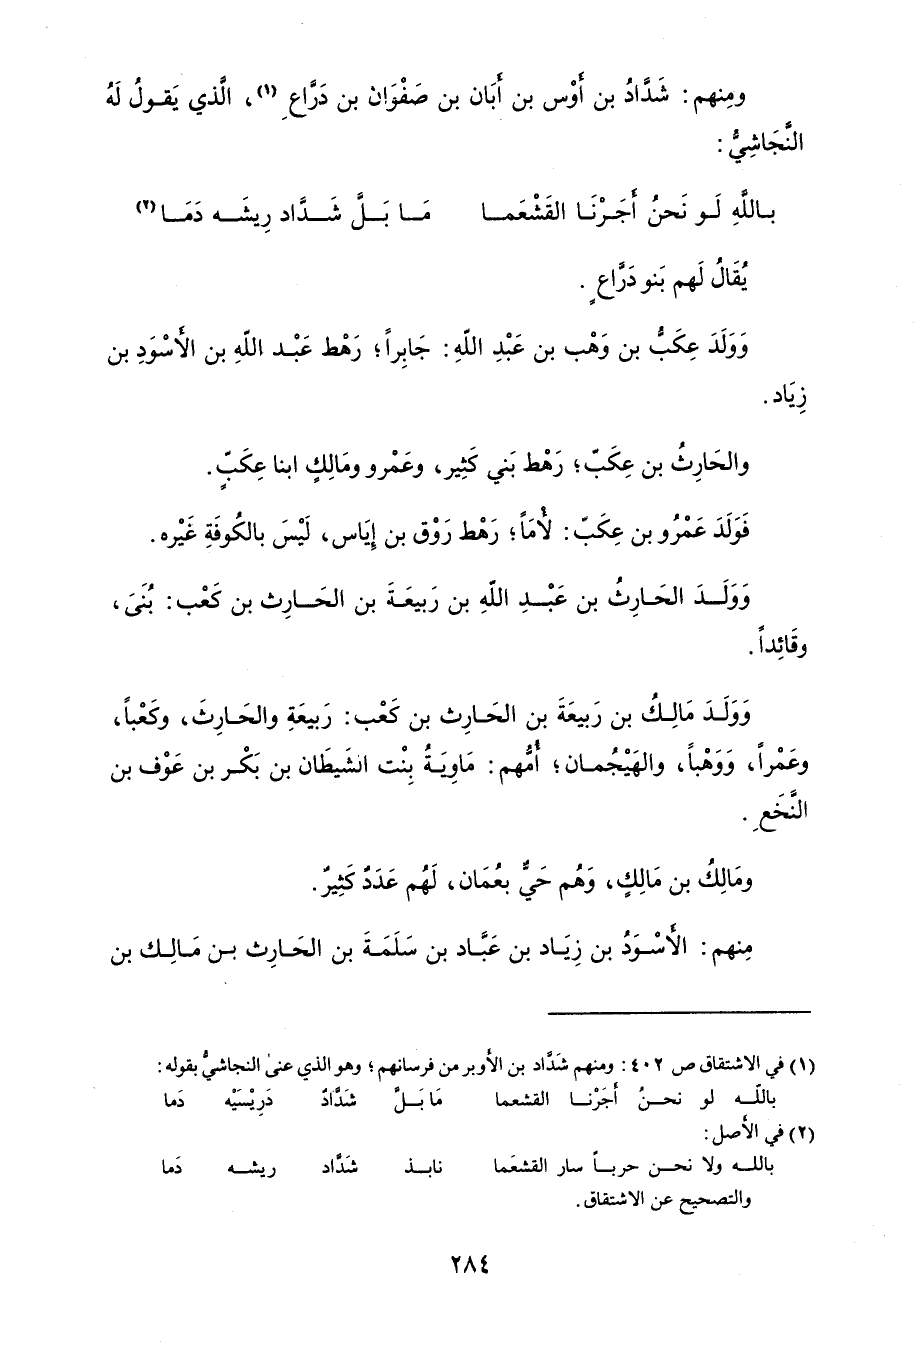 ومِنهم : شَدَّادُ بن أَوْس بن أَبَان بن صَفْوَان بن دَرَّاعٍ (١) ، الَّذي يَقولُ لَهُ
النَّجَاشِيُّ :
بـاللَّهِ لَـو نَحنُ أَجَـرْنَـا القَشْعَمـا مَـا بَـلَّ شَـدَّاد رِيشَـه دَمَـا (٢)
يُقَالُ لَهم بَنو دَرَّاعٍ .
وَوَلَدَ عِكَبُّ بن وَهْب بن عَبْدِ اللّهِ : جَابِراً ؛ رَهْط عَبْـد اللّهِ بن الأَسْوَدِ بن
زِيَاد .
والحَارِثُ بن عِكَبّ ؛ رَهْط بَني كَثِير ، وعَمْرو ومَالِكٍ ابنا عِكَبٍّ .
فَوَلَدَ عَمْرُو بن عِكَبّ : لُأمَاً ؛ رَهْط رَوْق بن إِيَاس ، لَيْسَ بالكُوفَةِ غَيْره .
وَوَلَـدَ الحَـارِثُ بن عَبْـدِ اللّهِ بن رَبِيعَـةَ بن الحَـارِث بن كَعْب : بُنَىَ ،
وقَائِداً .
وَوَلَـدَ مَالِـكُ بن رَبِيعَةَ بن الحَـارِث بن كَعْب : رَبِيعَةِ والحَـارِثَ ، وكَعْباً ،
وعَمْراً ، وَوَهْباً ، والهَيْجُمـان ؛ أُمُّهم : مَاوِيَـةُ بِنْت الشَيطَان بن بَكْـر بن عَوْف بن
النَّخَعِ .
ومَالِكُ بن مَالِكٍ ، وَهُم حَيٌّ بعُمَان ، لَهُم عَدَدٌ كَثِيرٌ .
مِنهم : الأَسْـوَدُ بن زِيَـاد بن عَبَّـاد بن سَلَمَـةَ بن الحَـارِث بـن مَـالِـك بن
(١) في الاشتقاق ص ٤٠٢ : ومنهم شَدَّاد بن الأوبر من فرسانهم ؛ وهو الذي عنىٰ النجاشيُّ بقوله :
باللّـه لو نحـنُ أجَرْنـا القشعما مَا بَـلَّ شدَّادٌ دَرِيْسَيْه دَما
(٢) في الأصل :
باللـه ولا نحـن حربـاً سار القشعَما نابـذ شدَّاد ريشـه دَما
والتصحيح عن الاشتقاق .
٢٨٤